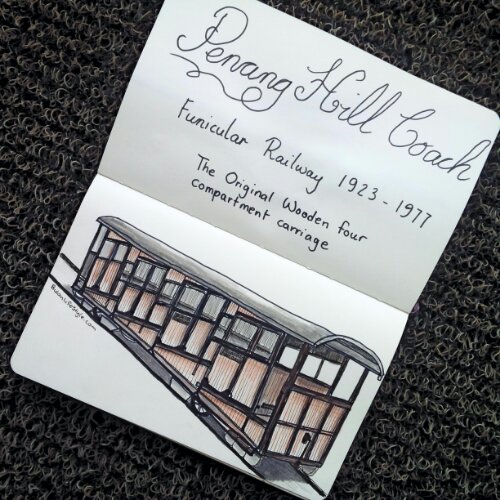 Penang Hill Coach
Funicular Railway 1923-1977
The Original Wooden four
compartment carriage